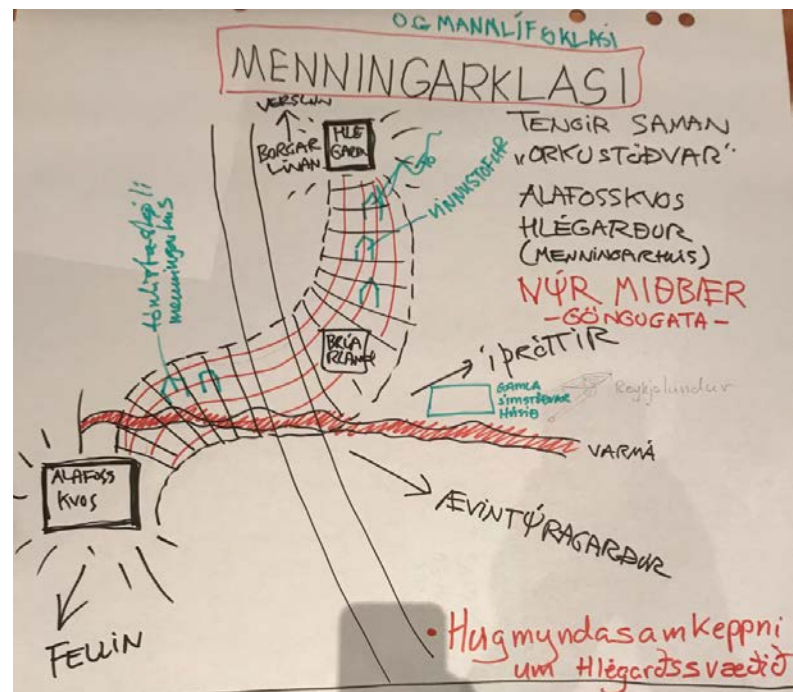 OG MANNLÍFSKLASI
MENNINGARKLASI
VERSLUN
BORGAR
LÍNAN
HLÉ
GARÐ
TENGIR SAMAN
„ORKUSTÖÐVAR“
ALAFOSSKVOS
HLÉGARÐUR
(MENNINGARHUS)
NÝR MIÐBÆR
-GÖNGUGATA-
VINNUSTOFUR
menningarhús
BRÚA
RLAND
ÍÞRÓTTIR
GAMLA
SÍMSTÖÐVAR
HÚSIÐ
Reykjalundur
VARMÁ
ALAFOSS
KVOS
ÆVINTÝRAGARÐUR
FELLIN
• Hugmyndasamkeppni
um Hlégarðssvæðið